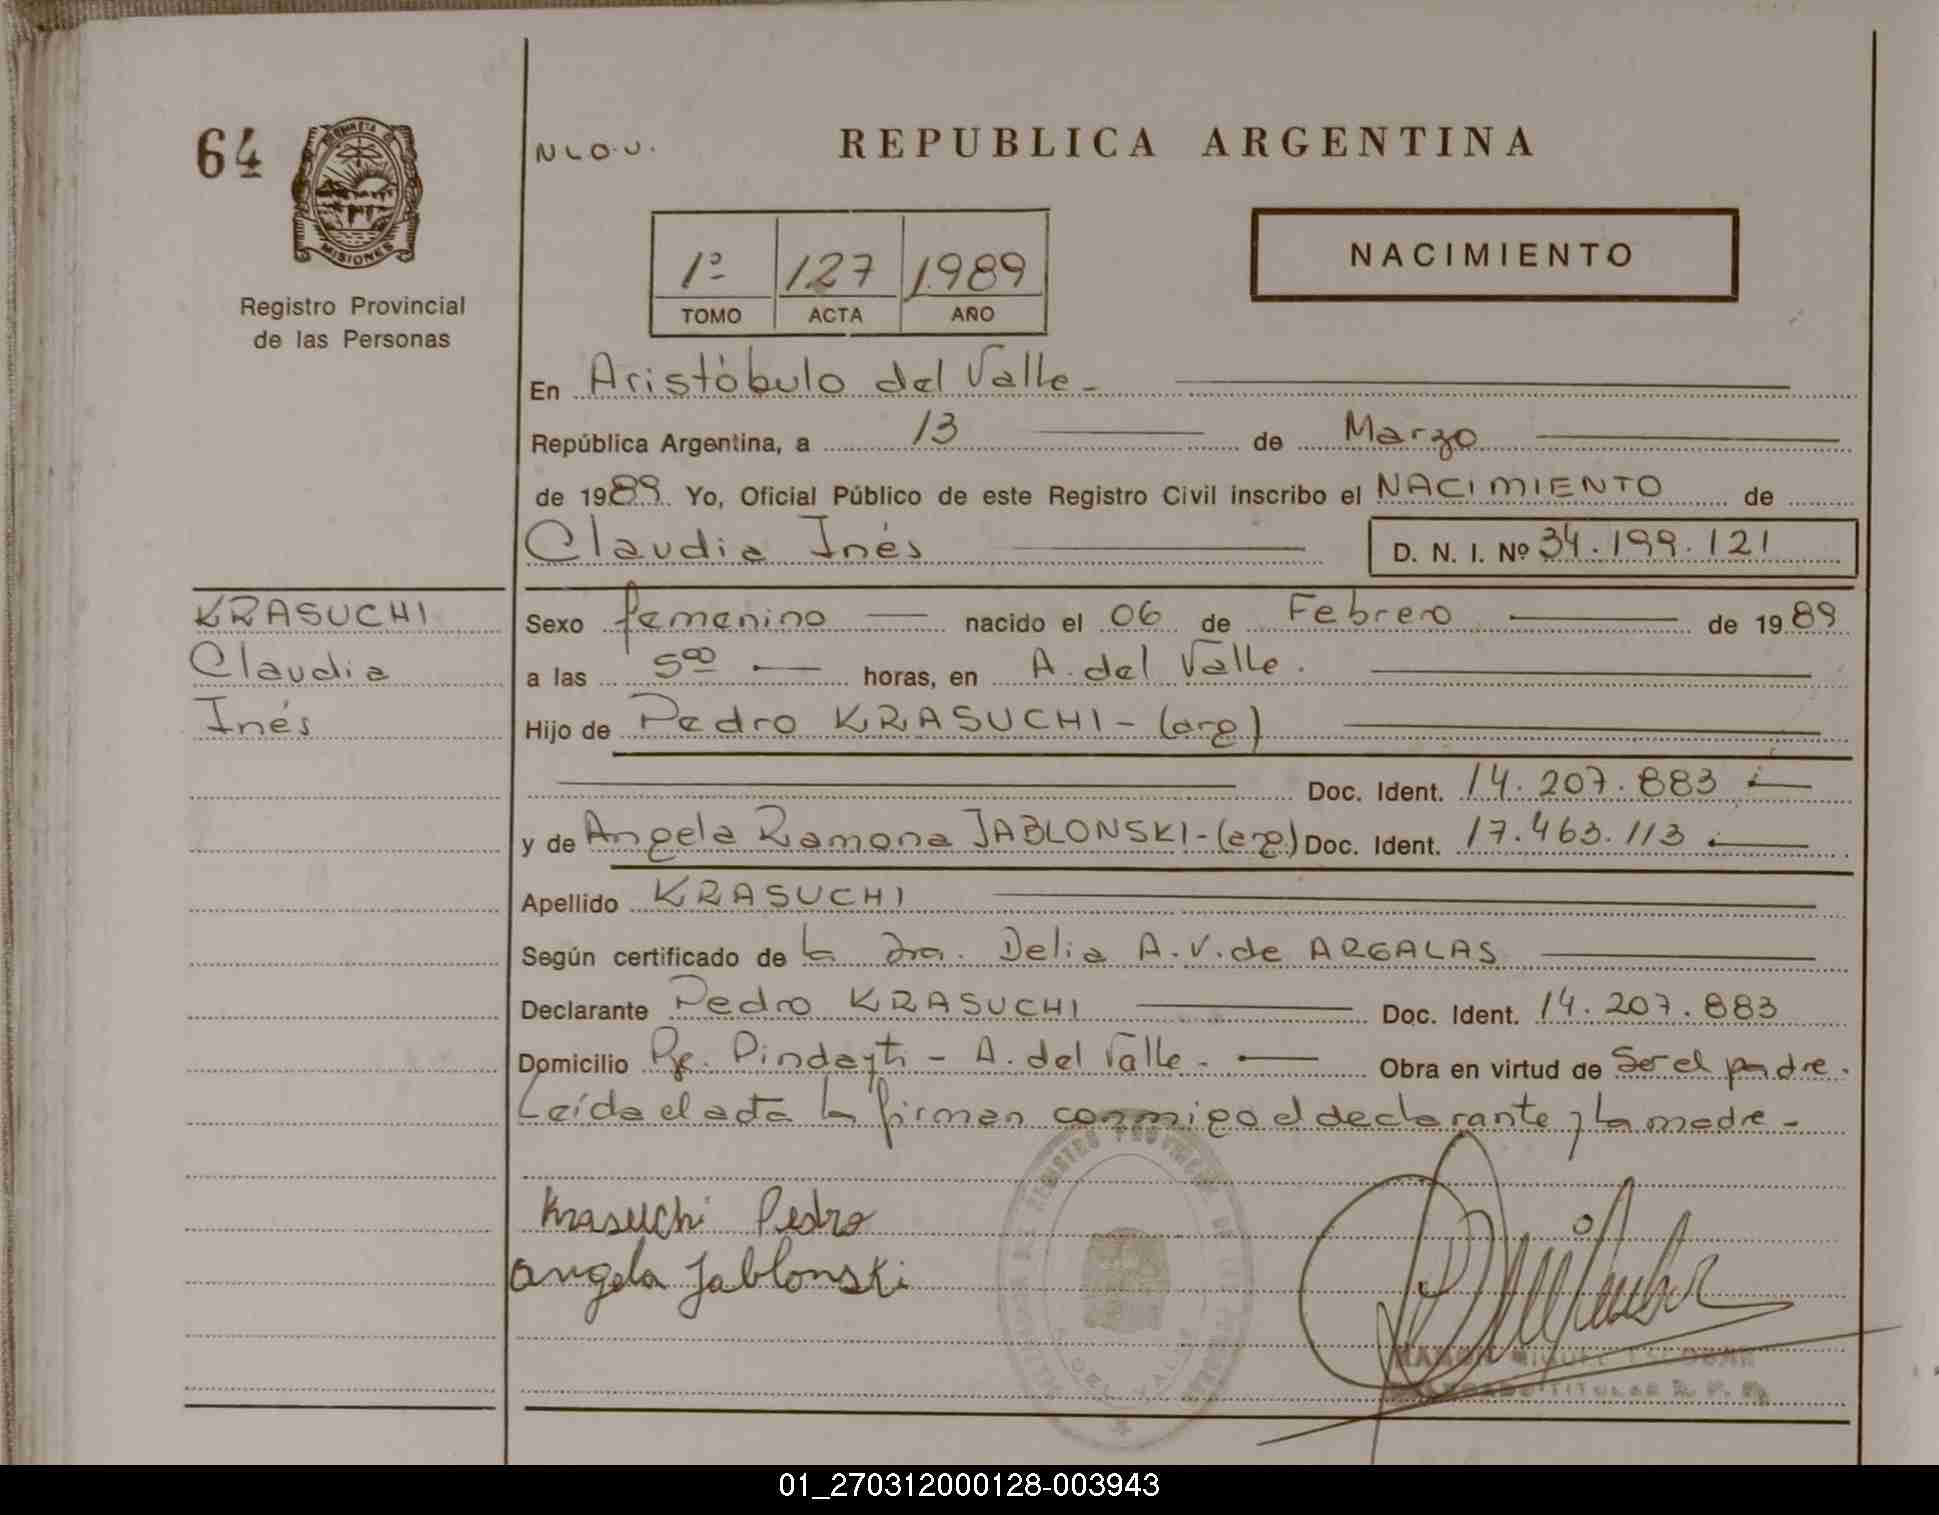 64
MISIONES
Registro Provincial
de las Personas
N L O . U .
REPUBLICA ARGENTINA
1º 127 1989
TOMO ACTA AÑO
NACIMIENTO
En Aristóbulo del Valle -
República Argentina, a 13 de Marzo
de 1989 Yo, Oficial Público de este Registro Civil inscribo el NACIMIENTO de
Claudia Inés D. N. I. Nº 34.199.121
KRASUCHI
Claudia
Inés
Sexo femenino nacido el 06 de Febrero de 1989
a las 5⁰⁰ horas, en A. del Valle.
Hijo de Pedro KRASUCHI - (arg)
Doc. Ident. 14.207.883
y de Angela Ramona JABLONSKI - (arg) Doc. Ident. 17.463.113
Apellido KRASUCHI
Según certificado de la Dra. Delia A. V. de ARGALAS
Declarante Pedro KRASUCHI Doc. Ident. 14.207.883
Domicilio Pje. Pindayti - A. del Valle. Obra en virtud de Ser el padre.
Leída el acta la firman conmigo el declarante y la madre -
Krasuchi Pedro
Angela Jablonski
DEL VALLE
TITULAR R. P. P.
01_270312000128-003943